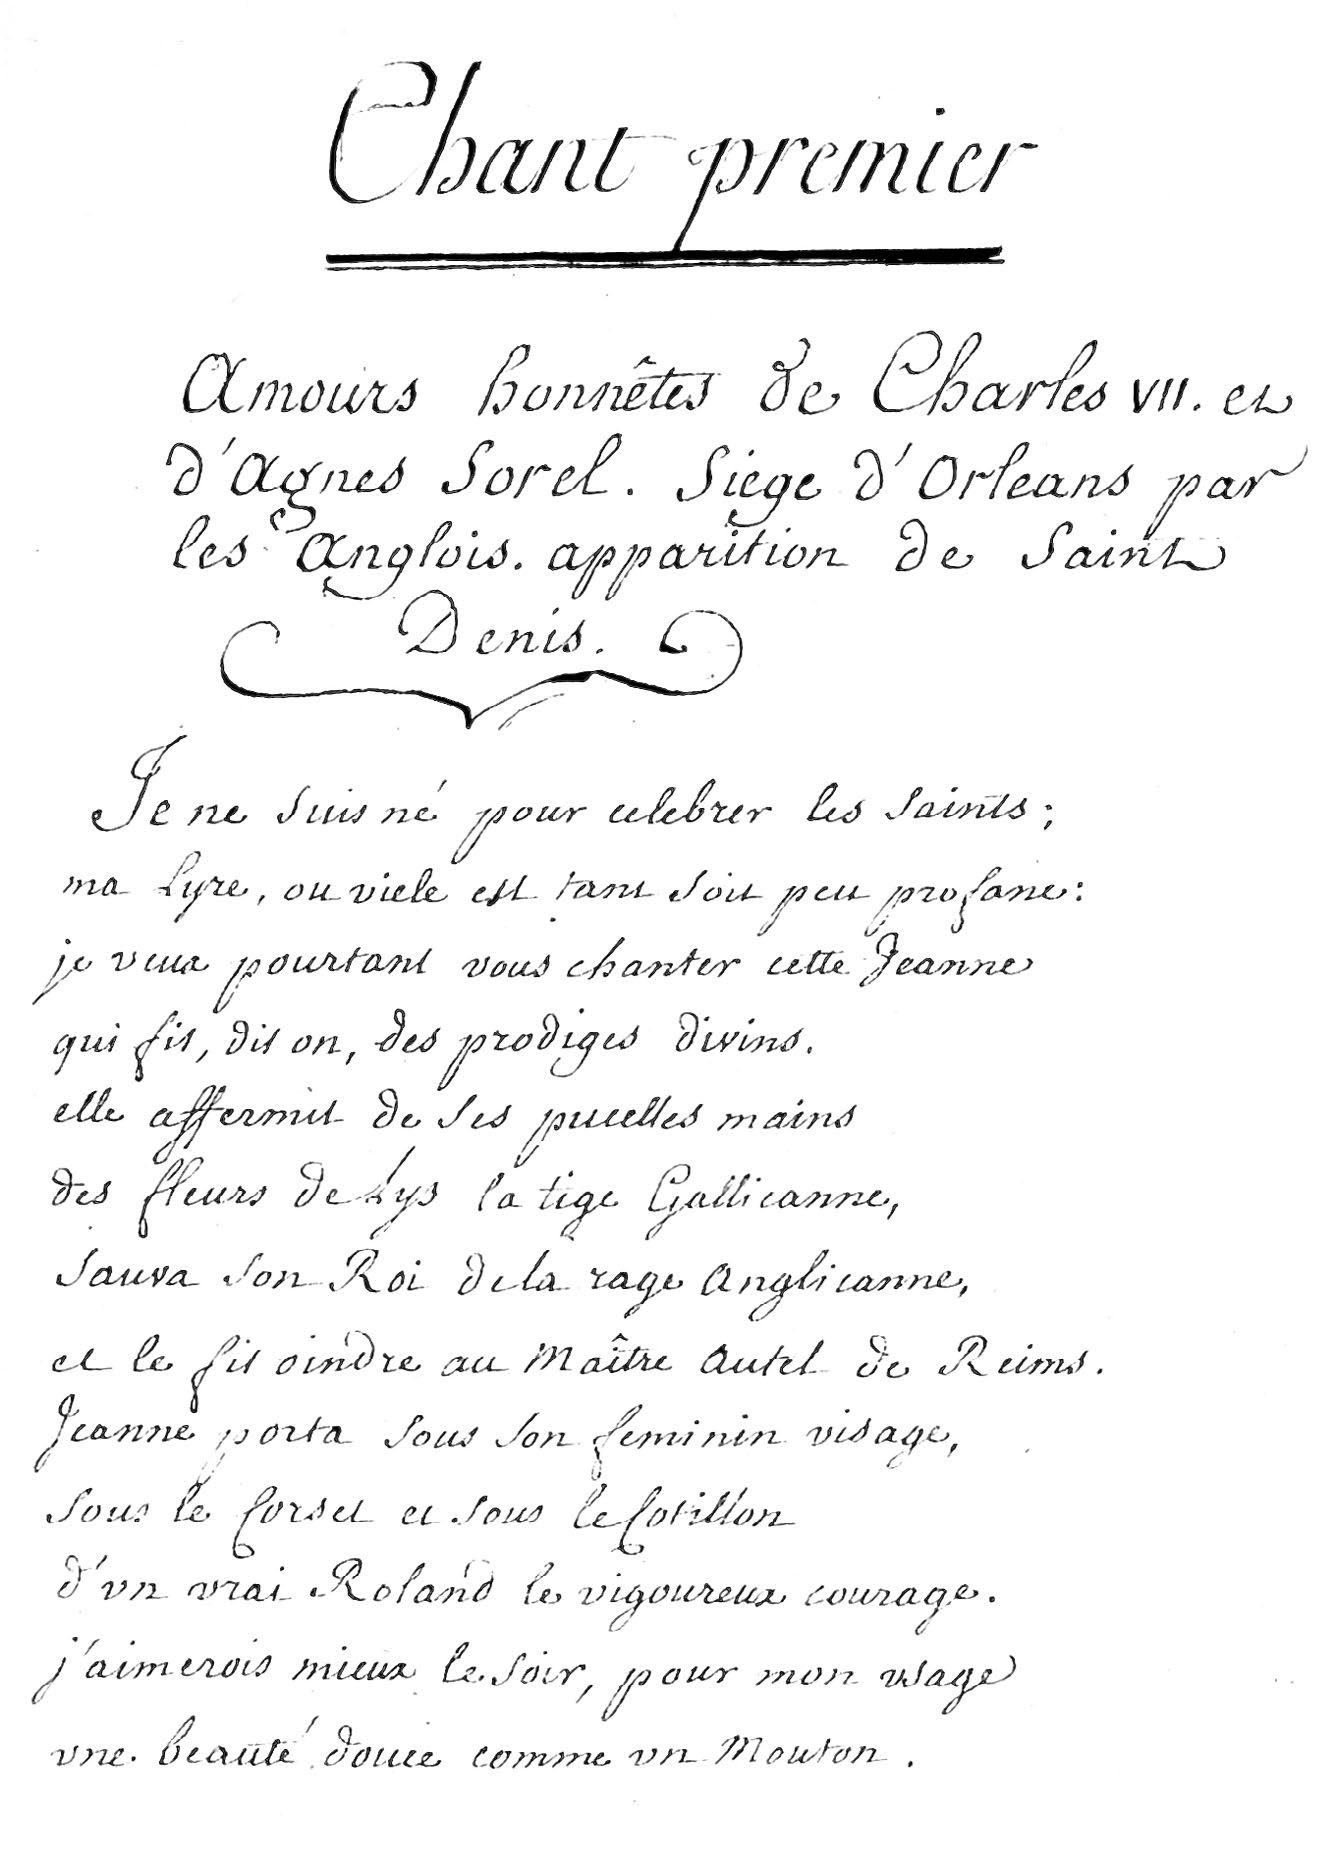 Chant premier
Amours honnêtes de Charles VII. et
d'Agnes Sorel. Siege d'Orleans par
les Anglois. apparition de Saint
Denis.
Je ne suis né pour celebrer les saints;
ma Lyre, ou viele est tant soit peu profane:
je veux pourtant vous chanter cette Jeanne
qui fit, dit on, des prodiges divins.
elle affermit de ses pucelles mains
des fleurs de Lys la tige Gallicanne,
sauva son Roi de la rage Anglicanne,
et le fit oindre au Maître Autel de Reims.
Jeanne porta sous son feminin visage,
sous le Corset et sous le Cotillon
d'vn vrai Roland le vigoureux courage.
j'aimerois mieux le soir, pour mon vsage
vne beauté douce comme vn Mouton.